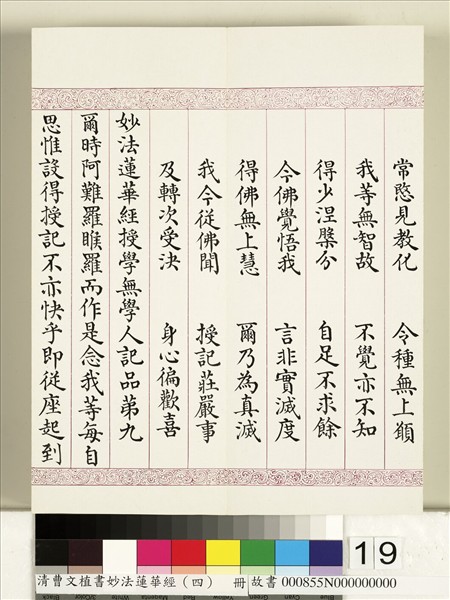 常愍見教化　令種無上願
我等無智故　不覺亦不知
得少涅槃分　自足不求餘
今佛覺悟我　言非實滅度
得佛無上慧　爾乃為真滅
我今從佛聞　授記莊嚴事
及轉次受決　身心徧歡喜
妙法蓮華經授學無學人記品第九
爾時阿難羅睺羅而作是念我等每自
思惟設得授記不亦快乎即從座起到
19
清曹文植書妙法蓮華經（四）　冊 故書 000855N000000000